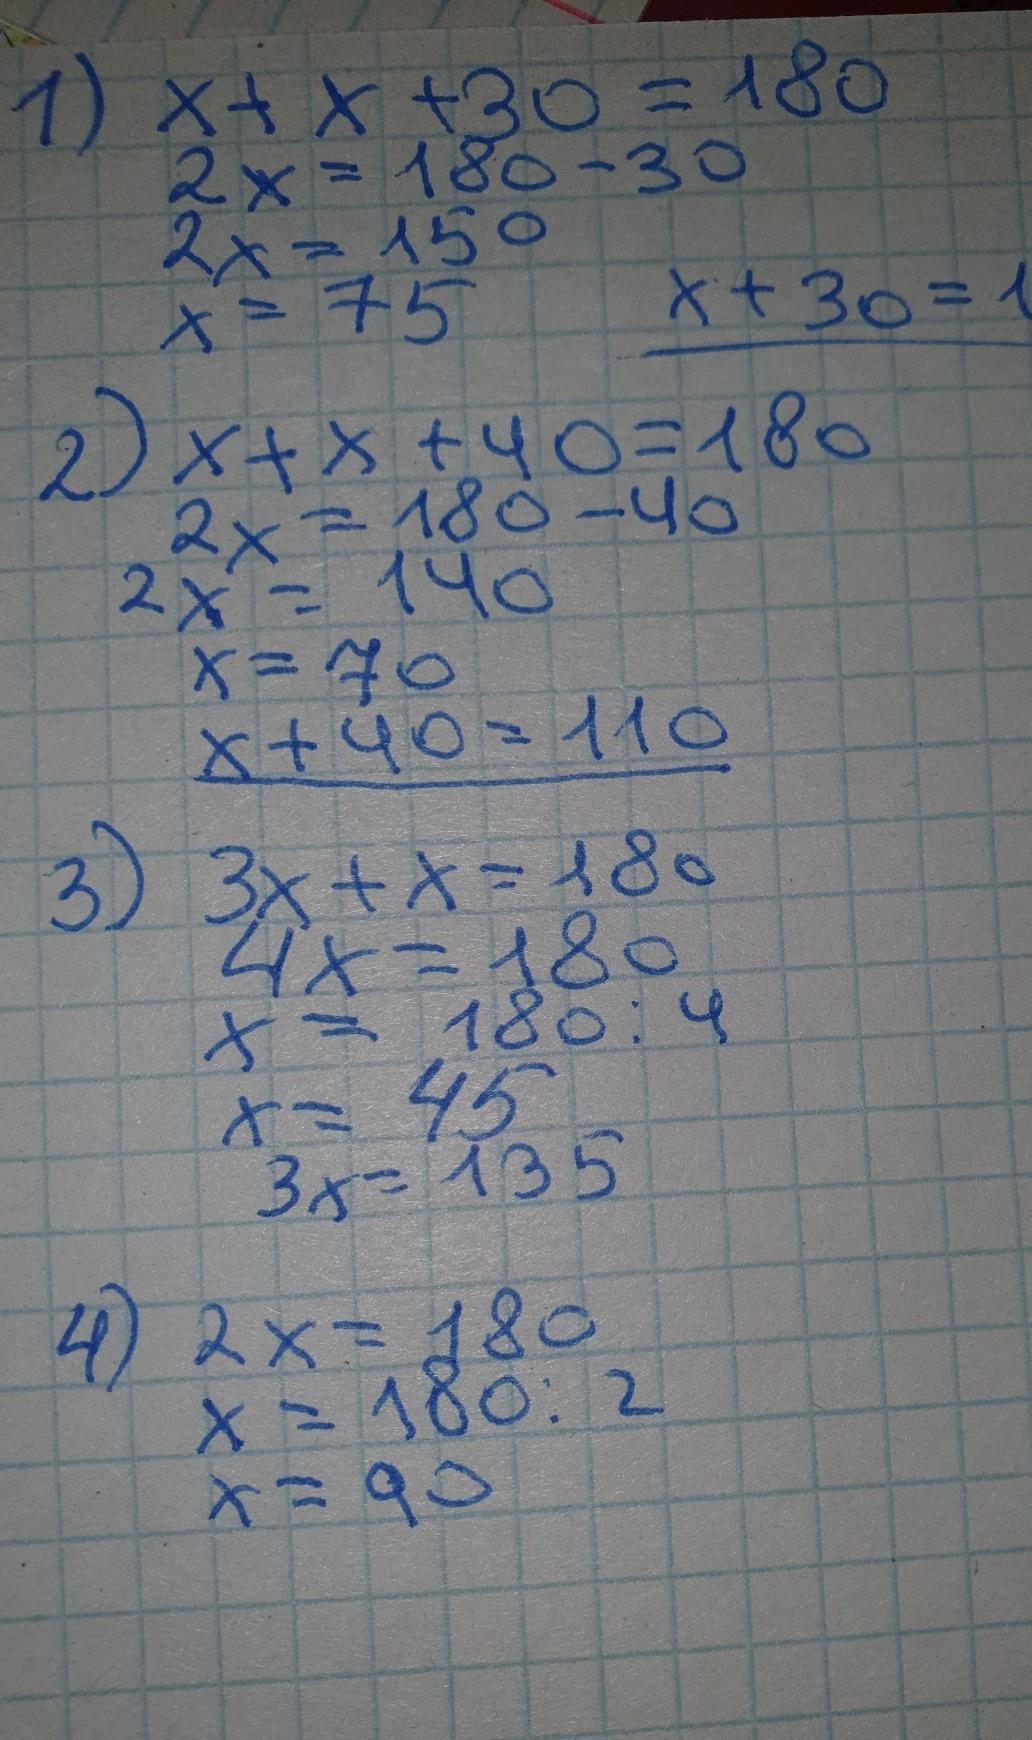 1) x + x + 30 = 180
2x = 180 - 30
2x = 150
x = 75
x + 30 = 1
2) x + x + 40 = 180
2x = 180 - 40
2x = 140
x = 70
x + 40 = 110
3) 3x + x = 180
4x = 180
x = 180 : 4
x = 45
3x = 135
4) 2x = 180
x = 180 : 2
x = 90